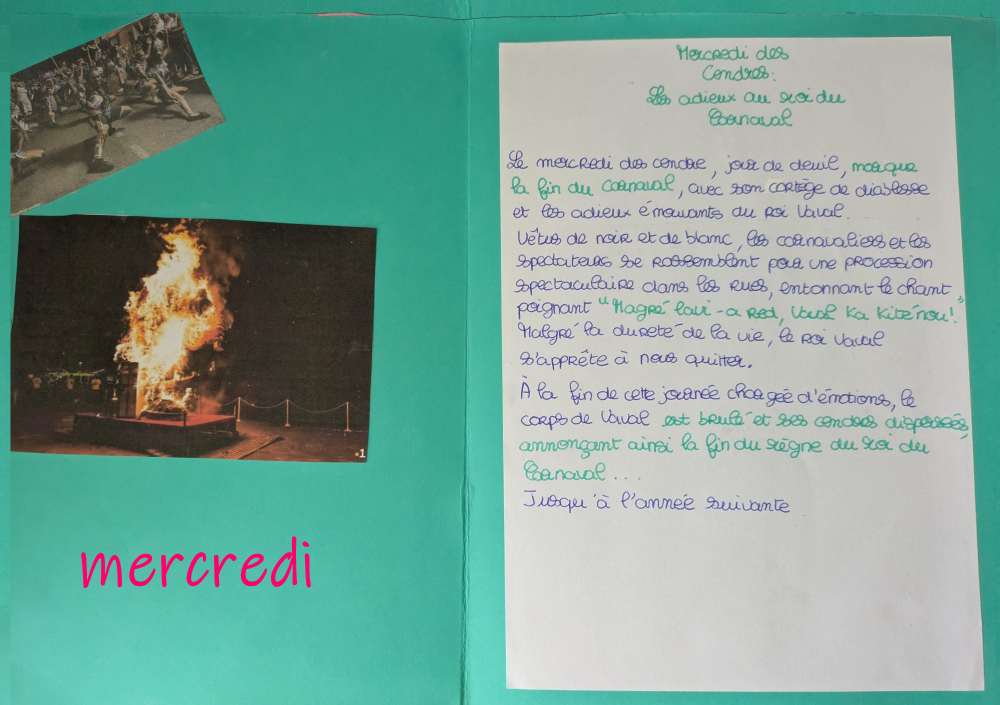 mercredi
Mercredi des
Cendres:
Les adieux au roi du
Carnaval
Le mercredi des cendre, jour de deuil, marque
la fin du Carnaval, avec son cortège de diablesse
et les adieux émouvants du roi Vaval.
Vêtus de noir et de blanc, les carnavaliers et les
spectateurs se rassemblent pour une procession
spectaculaire dans les rues, entonnant le chant
poignant "Magré lavi-a red, Vaval Ka Kité nou!"
Malgré la dureté de la vie, le roi Vaval
s'apprête à nous quitter.
À la fin de cette journée chargée d'émotions, le
corps de Vaval est brulé et ses cendres dispersées,
annonçant ainsi la fin du règne du roi du
Carnaval...
Jusqu'à l'année suivante